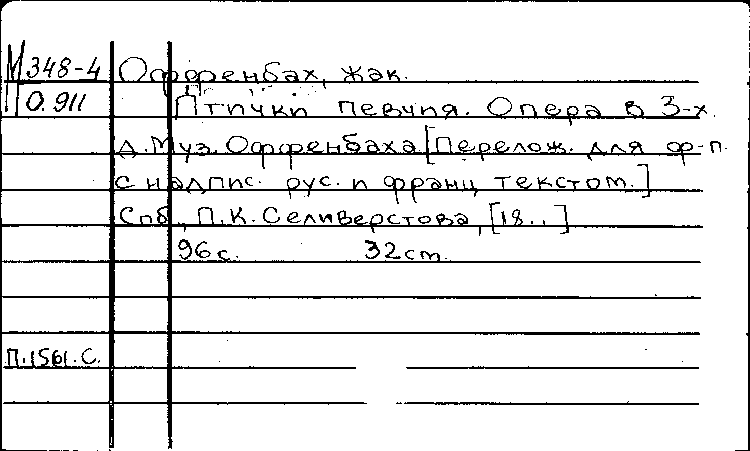 М348-4 Оффенбах, Жак.
П О.911 Птички певчия. Опера в 3-х.
д. Муз. Оффенбаха [Перелож. для ф-п.
с надпис. рус. и франц. текстом.]
Спб., П.К. Селиверстова, [18..]
96 с. 32 ст.
П.1561.С.